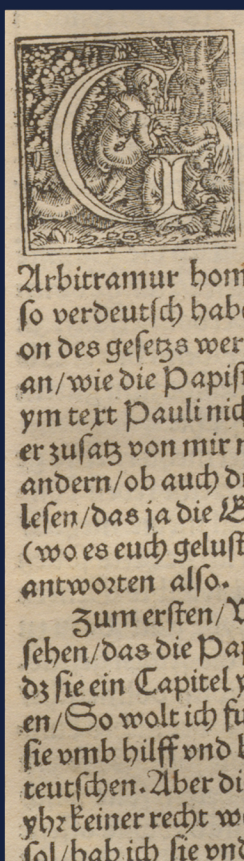 G
Arbitramur hom
so verdeutsch habe
on des gesetzs wer
an/wie die Papis
ym text Pauli nic
er zusatz von mir
andern/ob auch d
lesen/das ja die
(wo es euch gelust
antworten also.
Zum ersten/
sehen/das die Pap
dz sie ein Capitel
en/So wolt ich fu
sie vmb hilff vnd
teutschen. Aber di
yhr keiner recht w
sol/hab ich sie vn